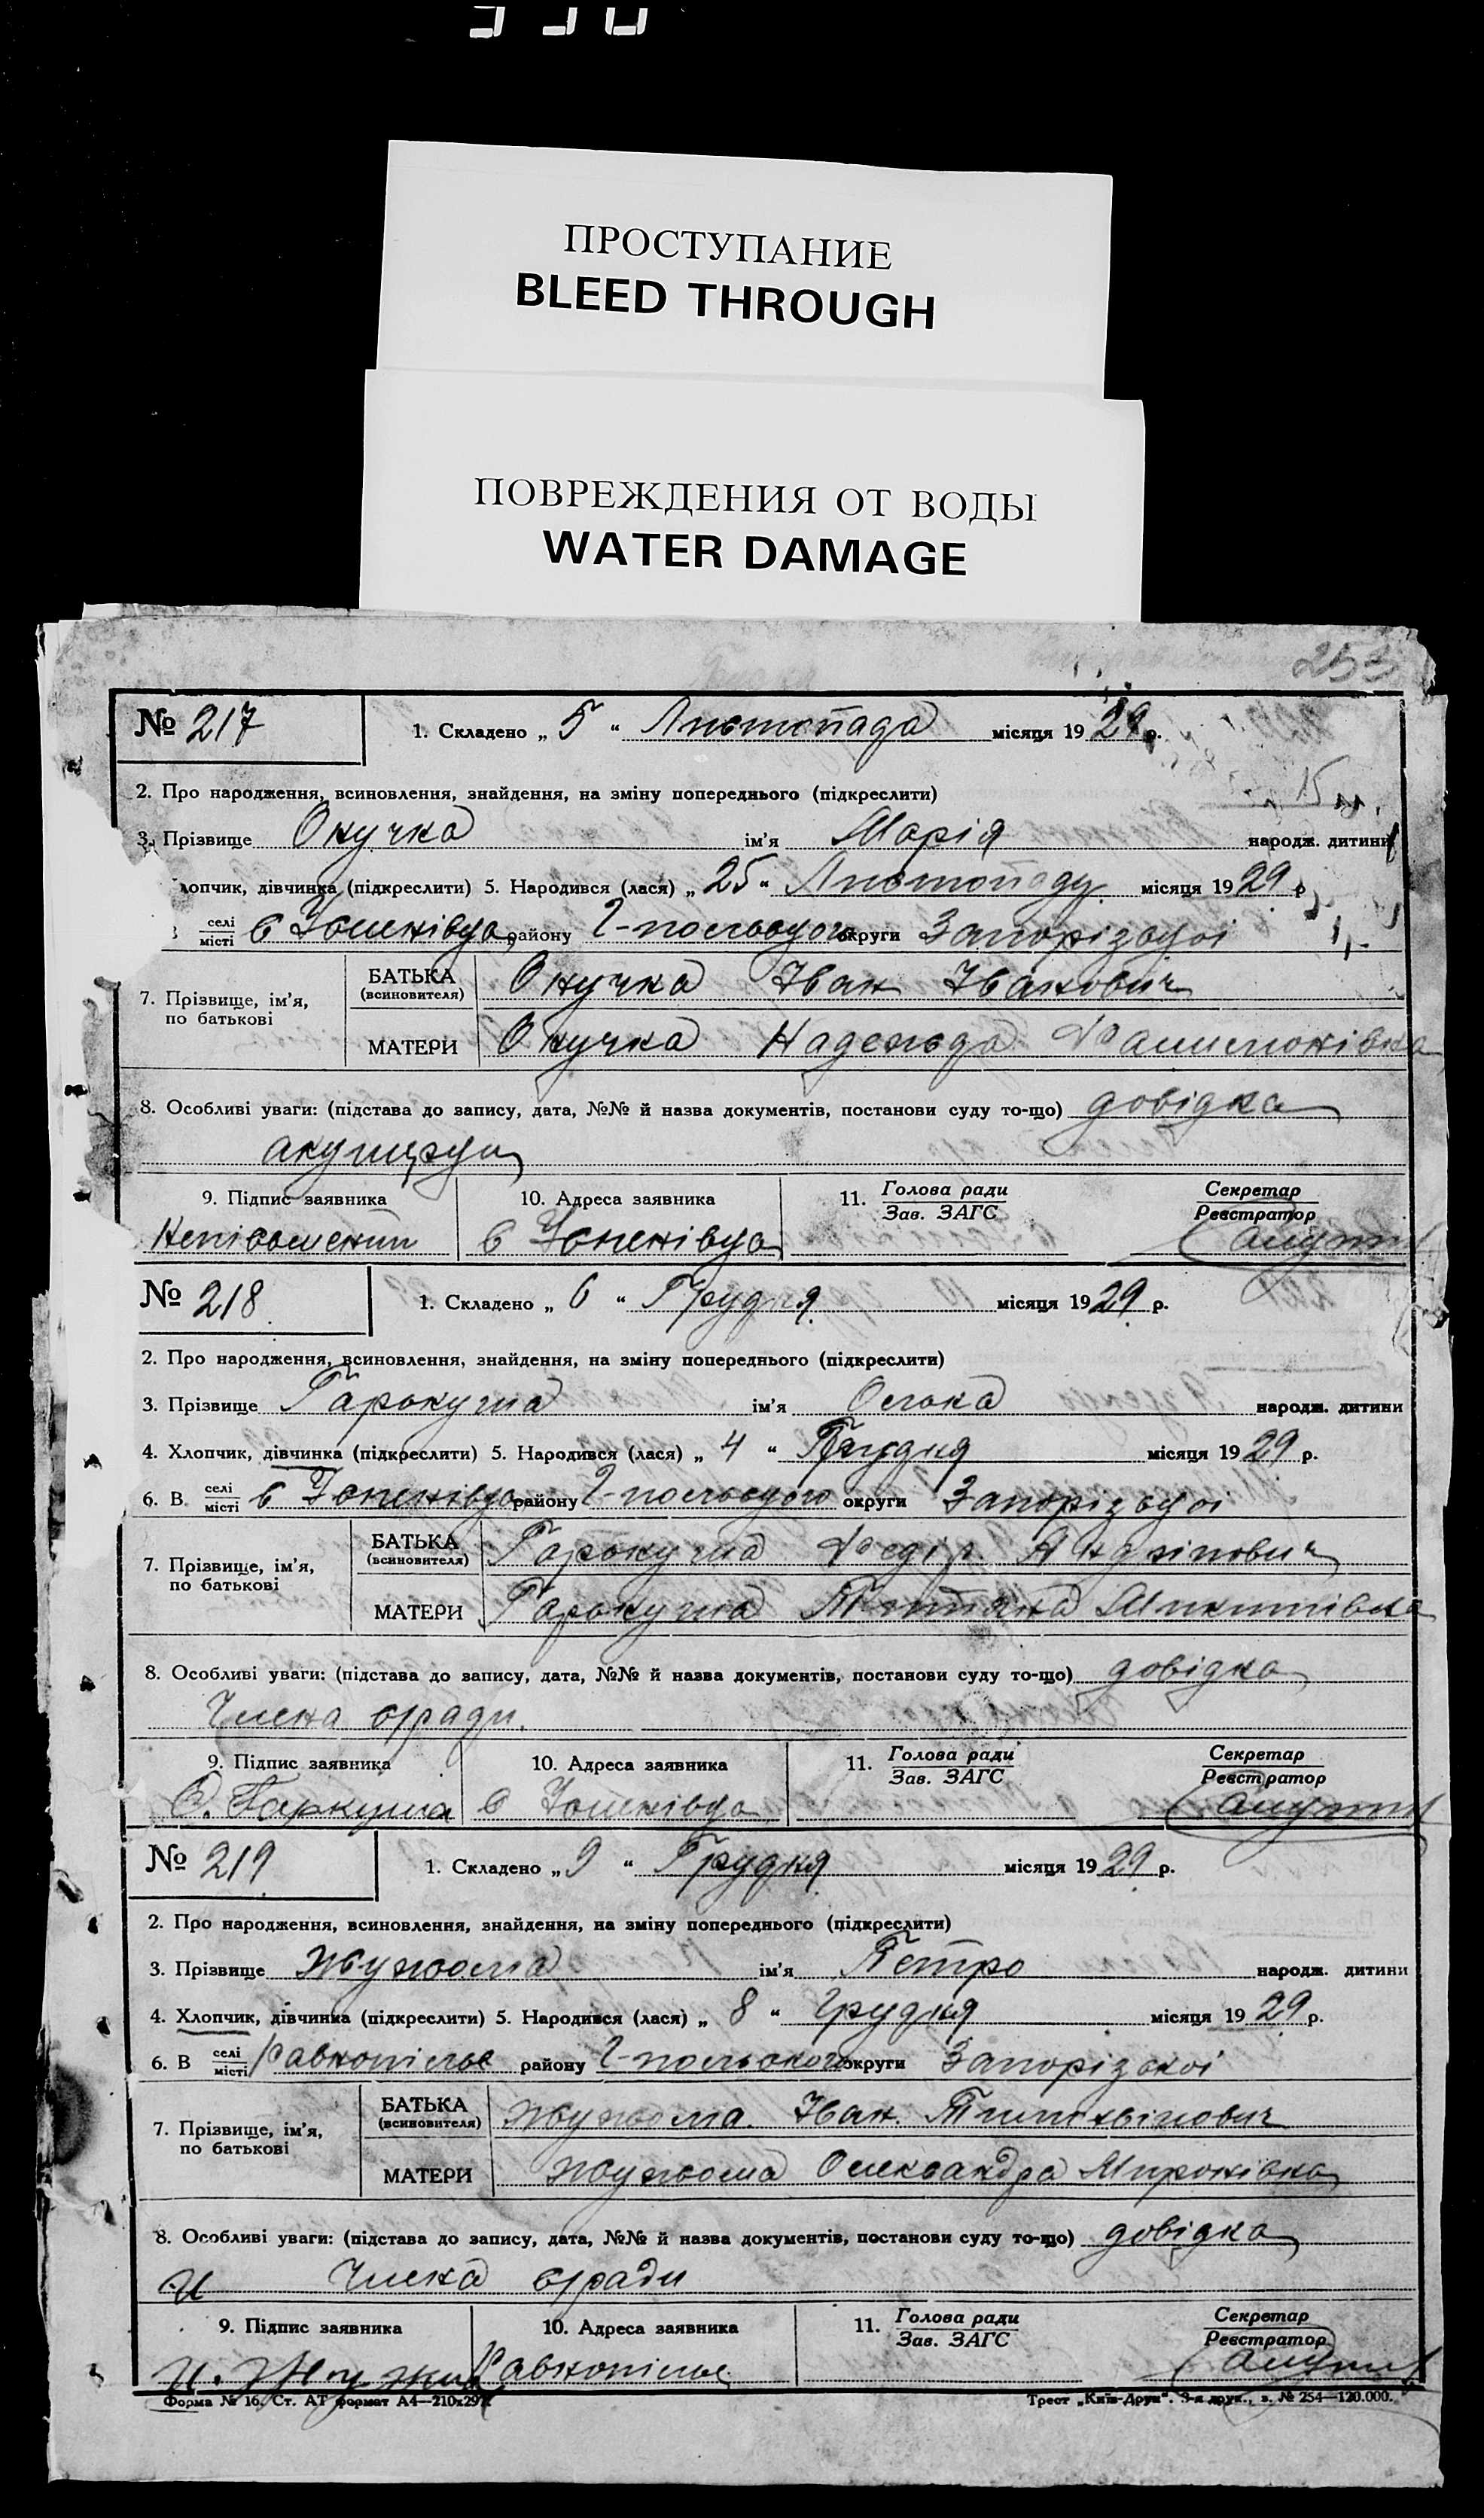 ПРОСТУПАНИЕ
BLEED THROUGH
ПОВРЕЖДЕНИЯ ОТ ВОДЫ
WATER DAMAGE
253
№ 217
1. Складено „ 5 “ Листопада місяця 1929 р.
2. Про народження, всиновлення, знайдення, на зміну попереднього (підкреслити)
3. Прізвище Онучка ім’я Марія народж. дитини
лопчик, дівчинка (підкреслити) 5. Народився (лася) „ 25 “ Листопаду місяця 1929 р
селі
місті
району Г-польського округи Запорізької
7. Прізвище, ім’я, по батькові
БАТЬКА (всиновителя) Онучка Іван Іванович
МАТЕРИ Онучка Надежда
8. Особливі уваги: (підстава до запису, дата, №№ й назва документів, постанови суду то-що) довідка
акушерки
9. Підпис заявника 10. Адреса заявника 11. Голова ради
Зав. ЗАГС
Секретар
Реєстратор
Неписьменний
№ 218
1. Складено „ 6 “ Грудня місяця 1929 р.
2. Про народження, всиновлення, знайдення, на зміну попереднього (підкреслити)
3. Прізвище Гарькуша ім’я Олька народж. дитини
4. Хлопчик, дівчинка (підкреслити) 5. Народився (лася) „ 4 “ Грудня місяця 1929 р.
6. В селі
місті
району Г-польського округи Запорізької
7. Прізвище, ім’я, по батькові
БАТЬКА (всиновителя) Гарькуша Федір
МАТЕРИ Гарькуша Тетяна Микитівна
8. Особливі уваги: (підстава до запису, дата, №№ й назва документів, постанови суду то-що) довідка
Члена с/ради.
9. Підпис заявника 10. Адреса заявника 11. Голова ради
Зав. ЗАГС
Секретар
Реєстратор
Гаркуша
№ 219
1. Складено „ 9 “ Грудня місяця 1929 р.
2. Про народження, всиновлення, знайдення, на зміну попереднього (підкреслити)
3. Прізвище ім’я Петро народж. дитини
4. Хлопчик, дівчинка (підкреслити) 5. Народився (лася) „ 8 “ Грудня місяця 1929 р.
6. В селі
місті Равнопілье району Г-польского округи Запорізскої
7. Прізвище, ім’я, по батькові
БАТЬКА (всиновителя) Іван
МАТЕРИ Олександра Миронівна
8. Особливі уваги: (підстава до запису, дата, №№ й назва документів, постанови суду то-що) довідка
Члена с/ради
9. Підпис заявника 10. Адреса заявника 11. Голова ради
Зав. ЗАГС
Секретар
Реєстратор
Равнопілье
Форма № 16. Ст. АТ формат А4—210х297
Трест „Київ-Друк“. 3-я друк., з. № 254—120.000.